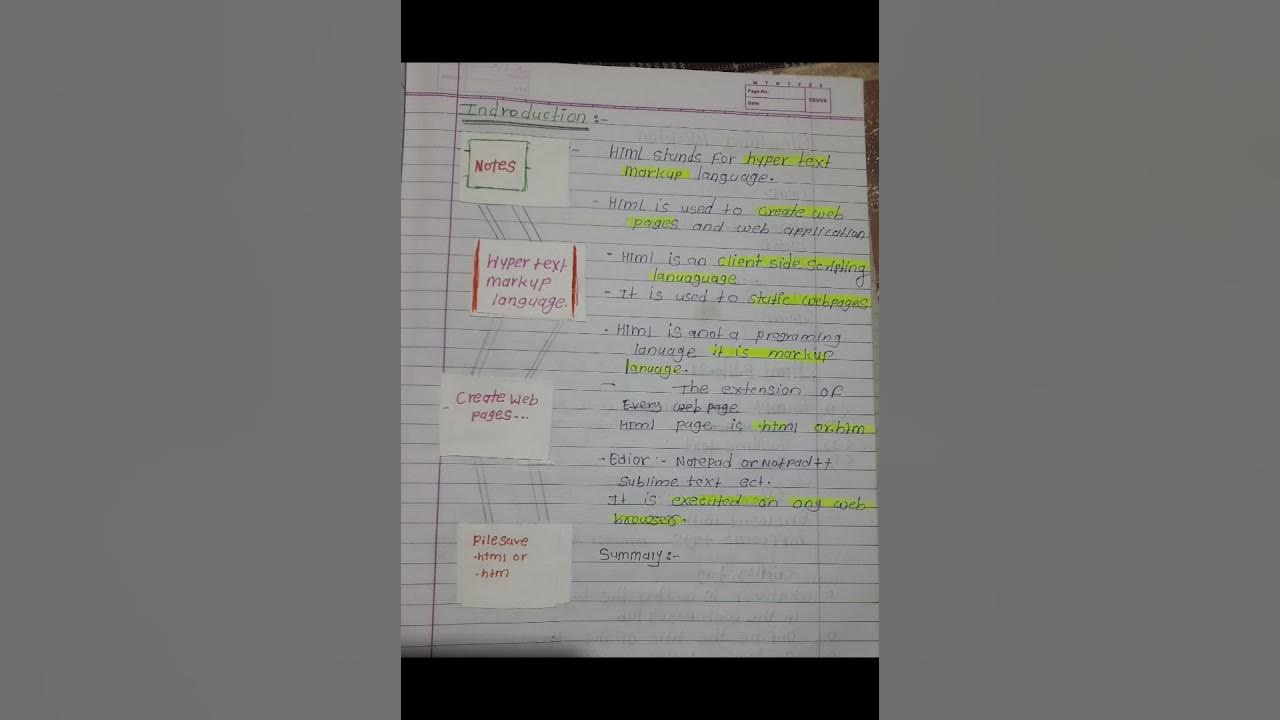 M T W T F S S
Page No.:
Date:
YOUVA
Indroduction:-
Notes
Hyper text
markup
language.
Create web
pages...
File save
.html or
.htm
Html stands for hyper text
markup language.
- Html is used to create web
pages and web application
- Html is an client side scripling
lanuaguage...
- It is used to static webpages
. Html is anot a programing
lanuage it is markup
lanuage.
- The extension of
Every web page
Html page is .html or.htm
- Edior :- Notepad or Notpad++
Sublime text ect.
It is executed on any web
browser.
Summary:-